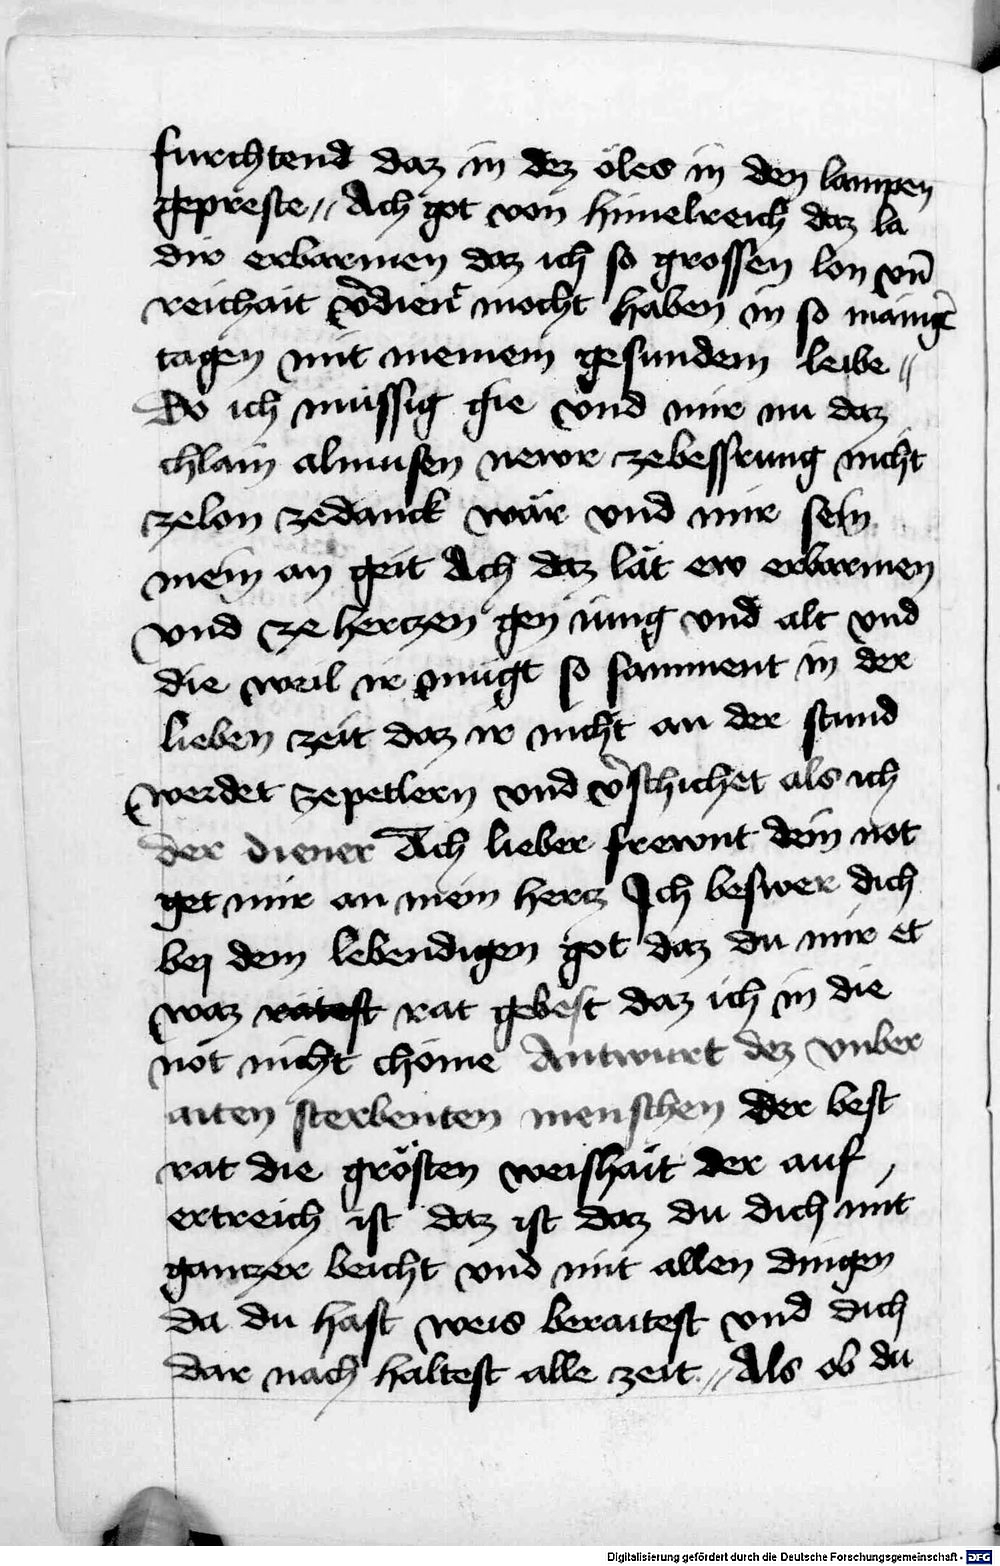 furchtend daz in dez öles in den lampen
gepreste // Ach got von himelreich daz la
dir erbarmen daz ich so grossen lon vn̄
reichait v̄dient mocht haben in so mānigē
tagen mit meinem gesundem leibe //
Do ich müssig gie vnd mir nu daz
chlain almusen newr zebessrung nicht
zelon zedanck wär vnd mir sein
mein an geit Ach daz lät ew erbarmen
vnd ze herczen gen iung vnd alt vnd
die weil ir mügt so samment in der
lieben zeit daz ir nicht an der stund
werdet zepetlern vnd v̄schichet als ich
der diener Ach lieber frewnt dein not
get mir an mein hercz Ich beswer dich
bey dem lebendigen got daz du mir et
waz ratest rat gebest daz ich in die
not nicht chöme Antwurt dez vnber
aiten sterbenten menschen der best
rat die grösten weishait der auf
ertreich ist daz ist daz du dich mit
ganczer beicht vnd mit allen dingen
da du hast weis beraitest vnd dich
dar nach haltest alle zeit // Als ob du
Digitalisierung gefördert durch die Deutsche Forschungsgemeinschaft - DFG